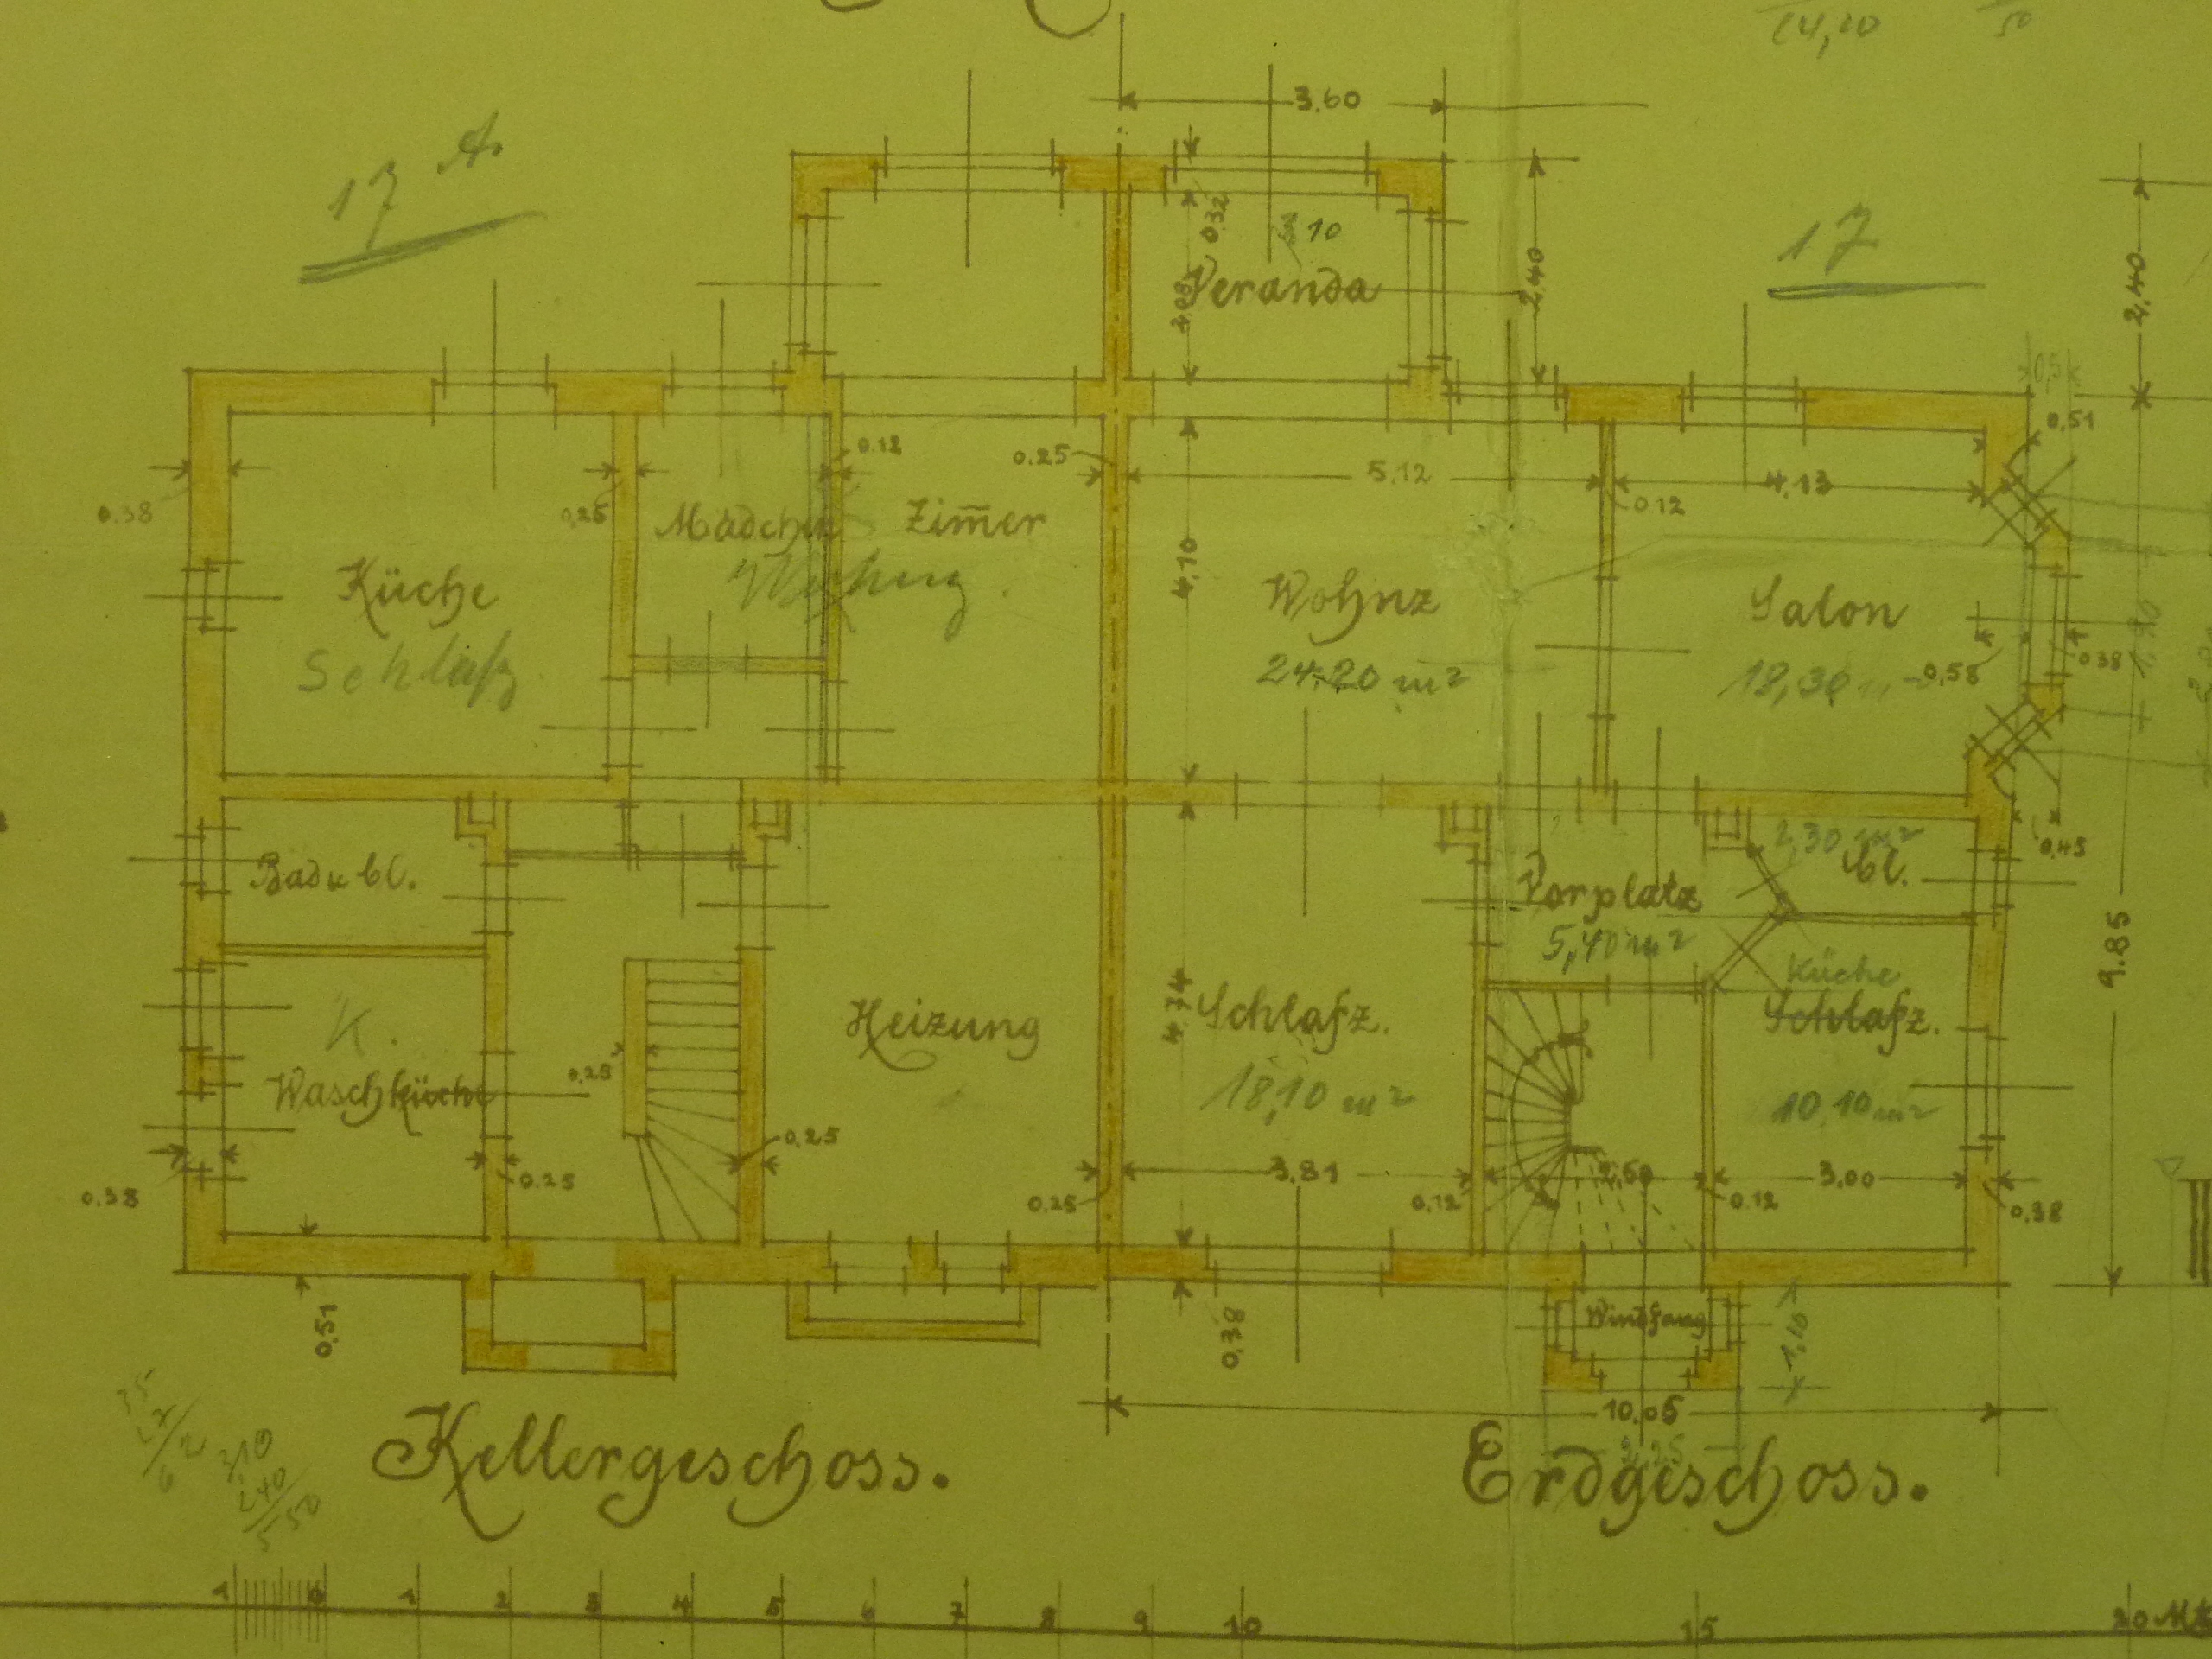 14,10
50
3.60
17 A.
17
0,32
10
Veranda
2.08
2,40
2,40
0,5
0,51
0.12
0.25
5,12
4,13
0.38
0,25
0.12
Mädchen
Zim̅er
4,10
Küche
Wohnz
Salon
Schlafz.
24,20 m²
18,30 m
0,58
0.38
2,30 m²
0,45
Bad u Cl.
Vorplatz
Cl.
5,40 m²
9.85
Küche
K.
Heizung
4.74
Schlafz.
Schlafz.
0,25
Waschküche
18,10 m²
10,10 m²
0,25
0.25
3,81
2,50
3,00
0.38
0.25
0.12
0.12
0,38
0,51
0,38
Windfang
1,10
10,05
2,25
Kellergeschoss.
Erdgeschoss.
310
240
550
1 0 1 2 3 4 5 6 7 8 9 10 15 20 Mt